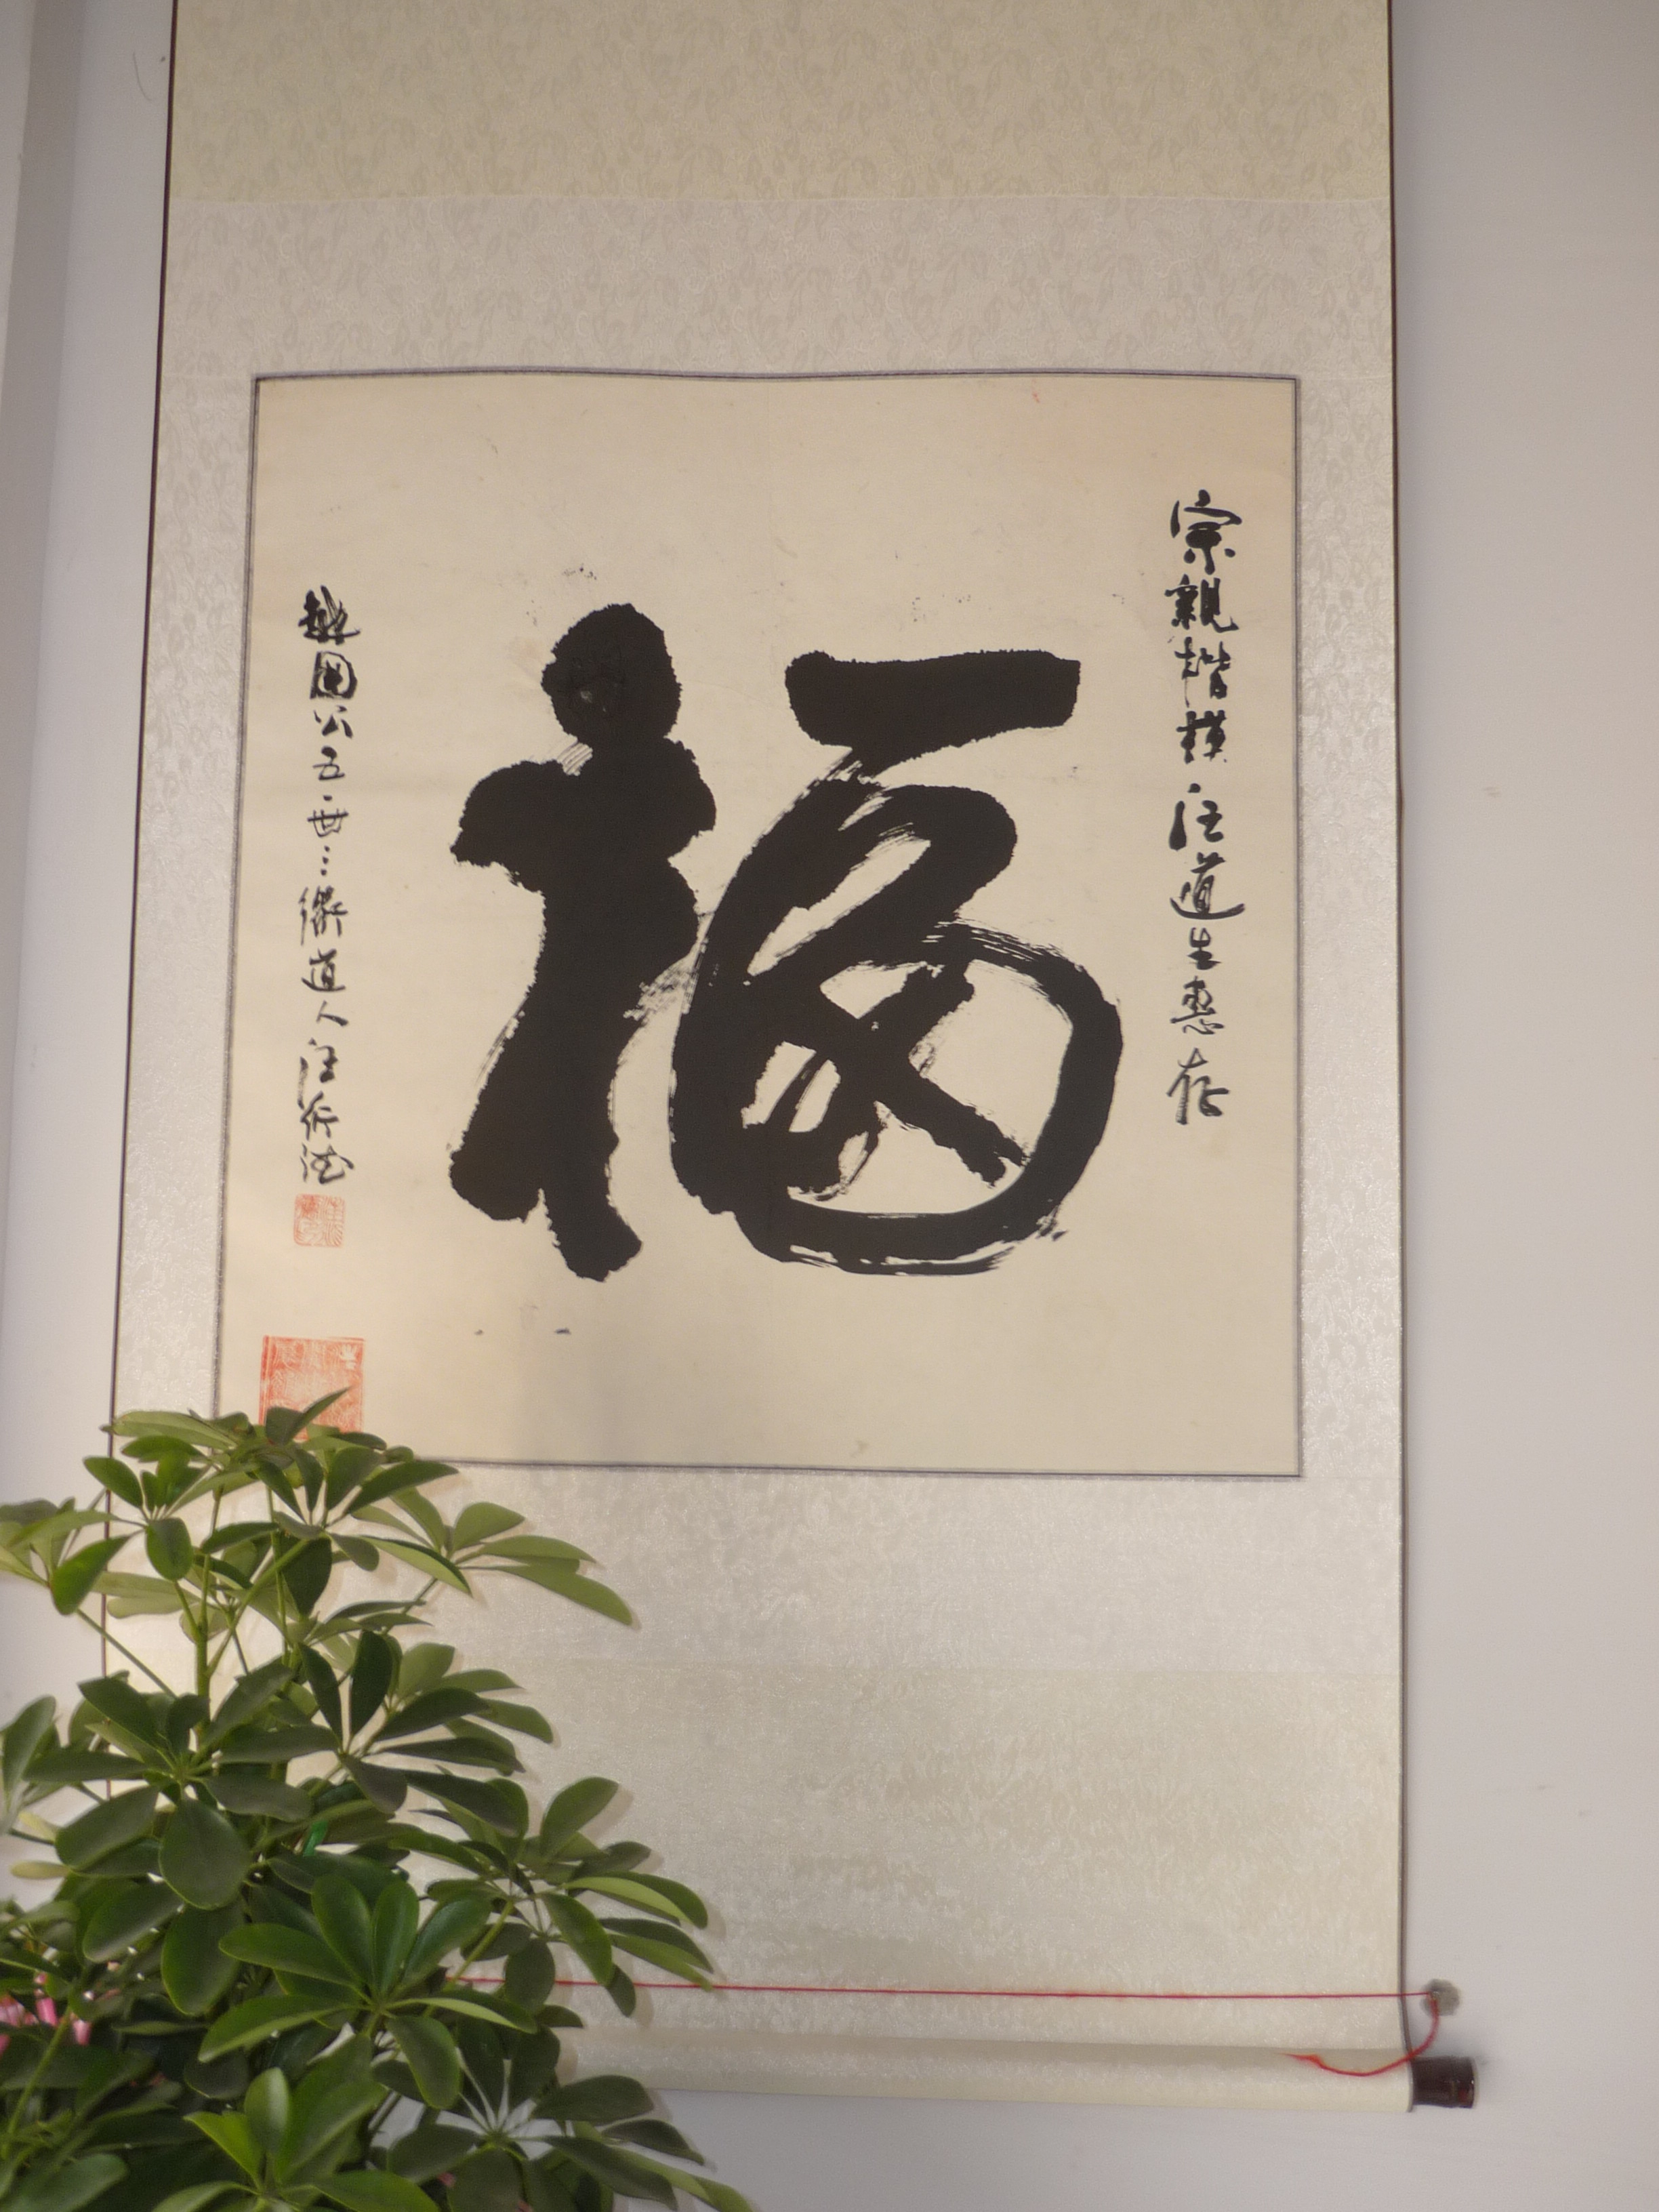 宗親楷模汪道生惠存
福
越國公五十世
道人汪